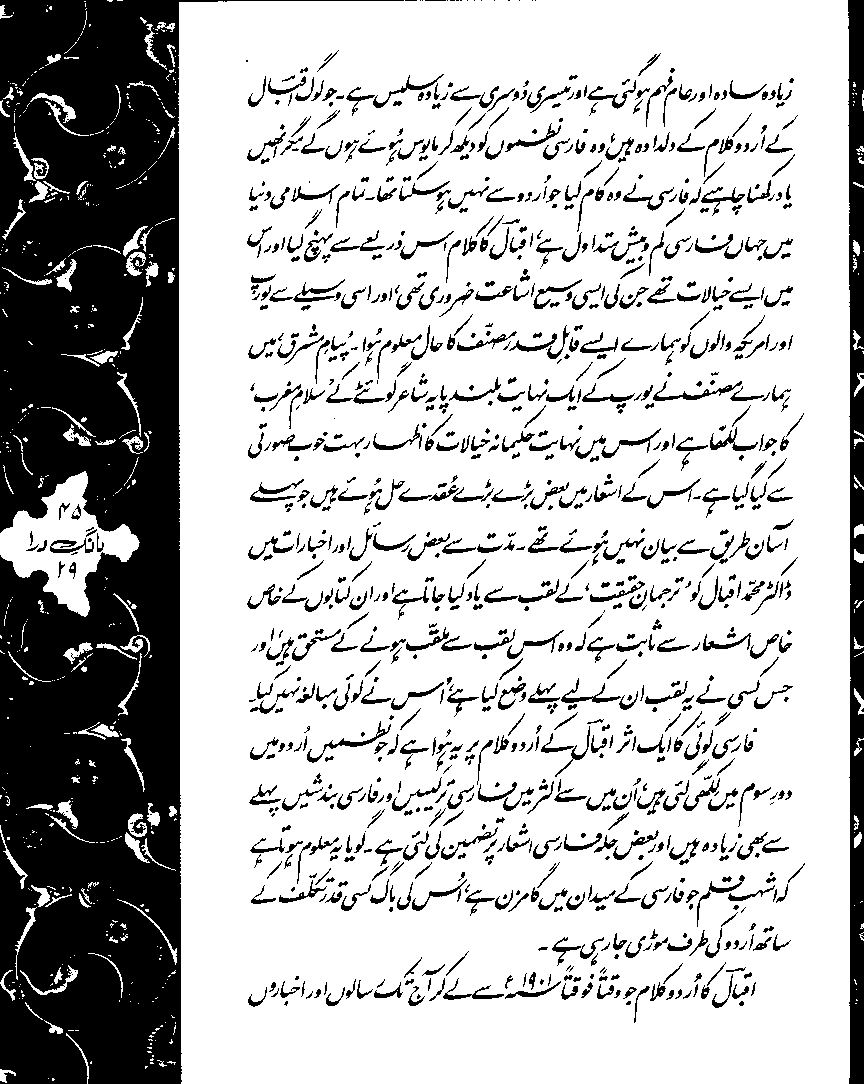 زیادہ سادہ اور عام فہم ہو گئی ہے اور تیسری دُوسری سے زیادہ سلیس ہے۔ جو لوگ اقبالؔ
کے اُردو کلام کے دلدادہ ہیں، وہ فارسی نظموں کو دیکھ کر مایوس ہُوئے ہوں گے مگر انھیں
یاد رکھنا چاہیے کہ فارسی نے وہ کام کیا جو اُردو سے نہیں ہو سکتا تھا۔ تمام اسلامی دنیا
میں جہاں فارسی کم و بیش متداول ہے، اقبالؔ کا کلام اس ذریعے سے پہنچ گیا اور اس
میں ایسے خیالات تھے جن کی ایسی وسیع اشاعت ضروری تھی، اور اسی وسیلے سے یورپ
اور امریکہ والوں کو ہمارے ایسے قابلِ قدر مصنّف کا حال معلوم ہُوا۔ ’پیامِ مشرق‘ میں
ہمارے مصنّف نے یورپ کے ایک نہایت بلند پایہ شاعر گوئٹے کے ’سلامِ مغرب‘
کا جواب لکھا ہے اور اس میں نہایت حکیمانہ خیالات کا اظہار بہت خوب صورتی
سے کیا گیا ہے۔ اس کے اشعار میں بعض بڑے بڑے عُقدے حل ہُوئے ہیں جو پہلے
آسان طریق سے بیان نہیں ہُوئے تھے۔ مدّت سے بعض رسائل اور اخبارات میں
ڈاکٹر محمد اقبال کو ’ترجمانِ حقیقت‘ کے لقب سے یاد کیا جاتا ہے اور ان کتابوں کے خاص
خاص اشعار سے ثابت ہے کہ وہ اس لقب سے ملقّب ہونے کے مستحق ہیں، اور
جس کسی نے یہ لقب ان کے لیے پہلے وضع کیا ہے، اُس نے کوئی مبالغہ نہیں کیا۔
فارسی گوئی کا ایک اثر اقبالؔ کے اُردو کلام پر یہ ہُوا ہے کہ جو نظمیں اُردو میں
دورِ سوم میں لکھی گئی ہیں، اُن میں سے اکثر میں فارسی ترکیبیں اور فارسی بندشیں پہلے
سے بھی زیادہ ہیں اور بعض جگہ فارسی اشعار پر تضمین کی گئی ہے۔ گویا یہ معلوم ہوتا ہے
کہ اشہبِ قلم جو فارسی کے میدان میں گامزن ہے، اُس کی باگ کسی قدر تکلّف کے
ساتھ اُردو کی طرف موڑی جا رہی ہے۔
اقبالؔ کا اُردو کلام جو وقتاً فوقتاً ۱۹۰۱ء سے لے کر آج تک رسالوں اور اخباروں
۴۵
بانگِ درا
۲۹